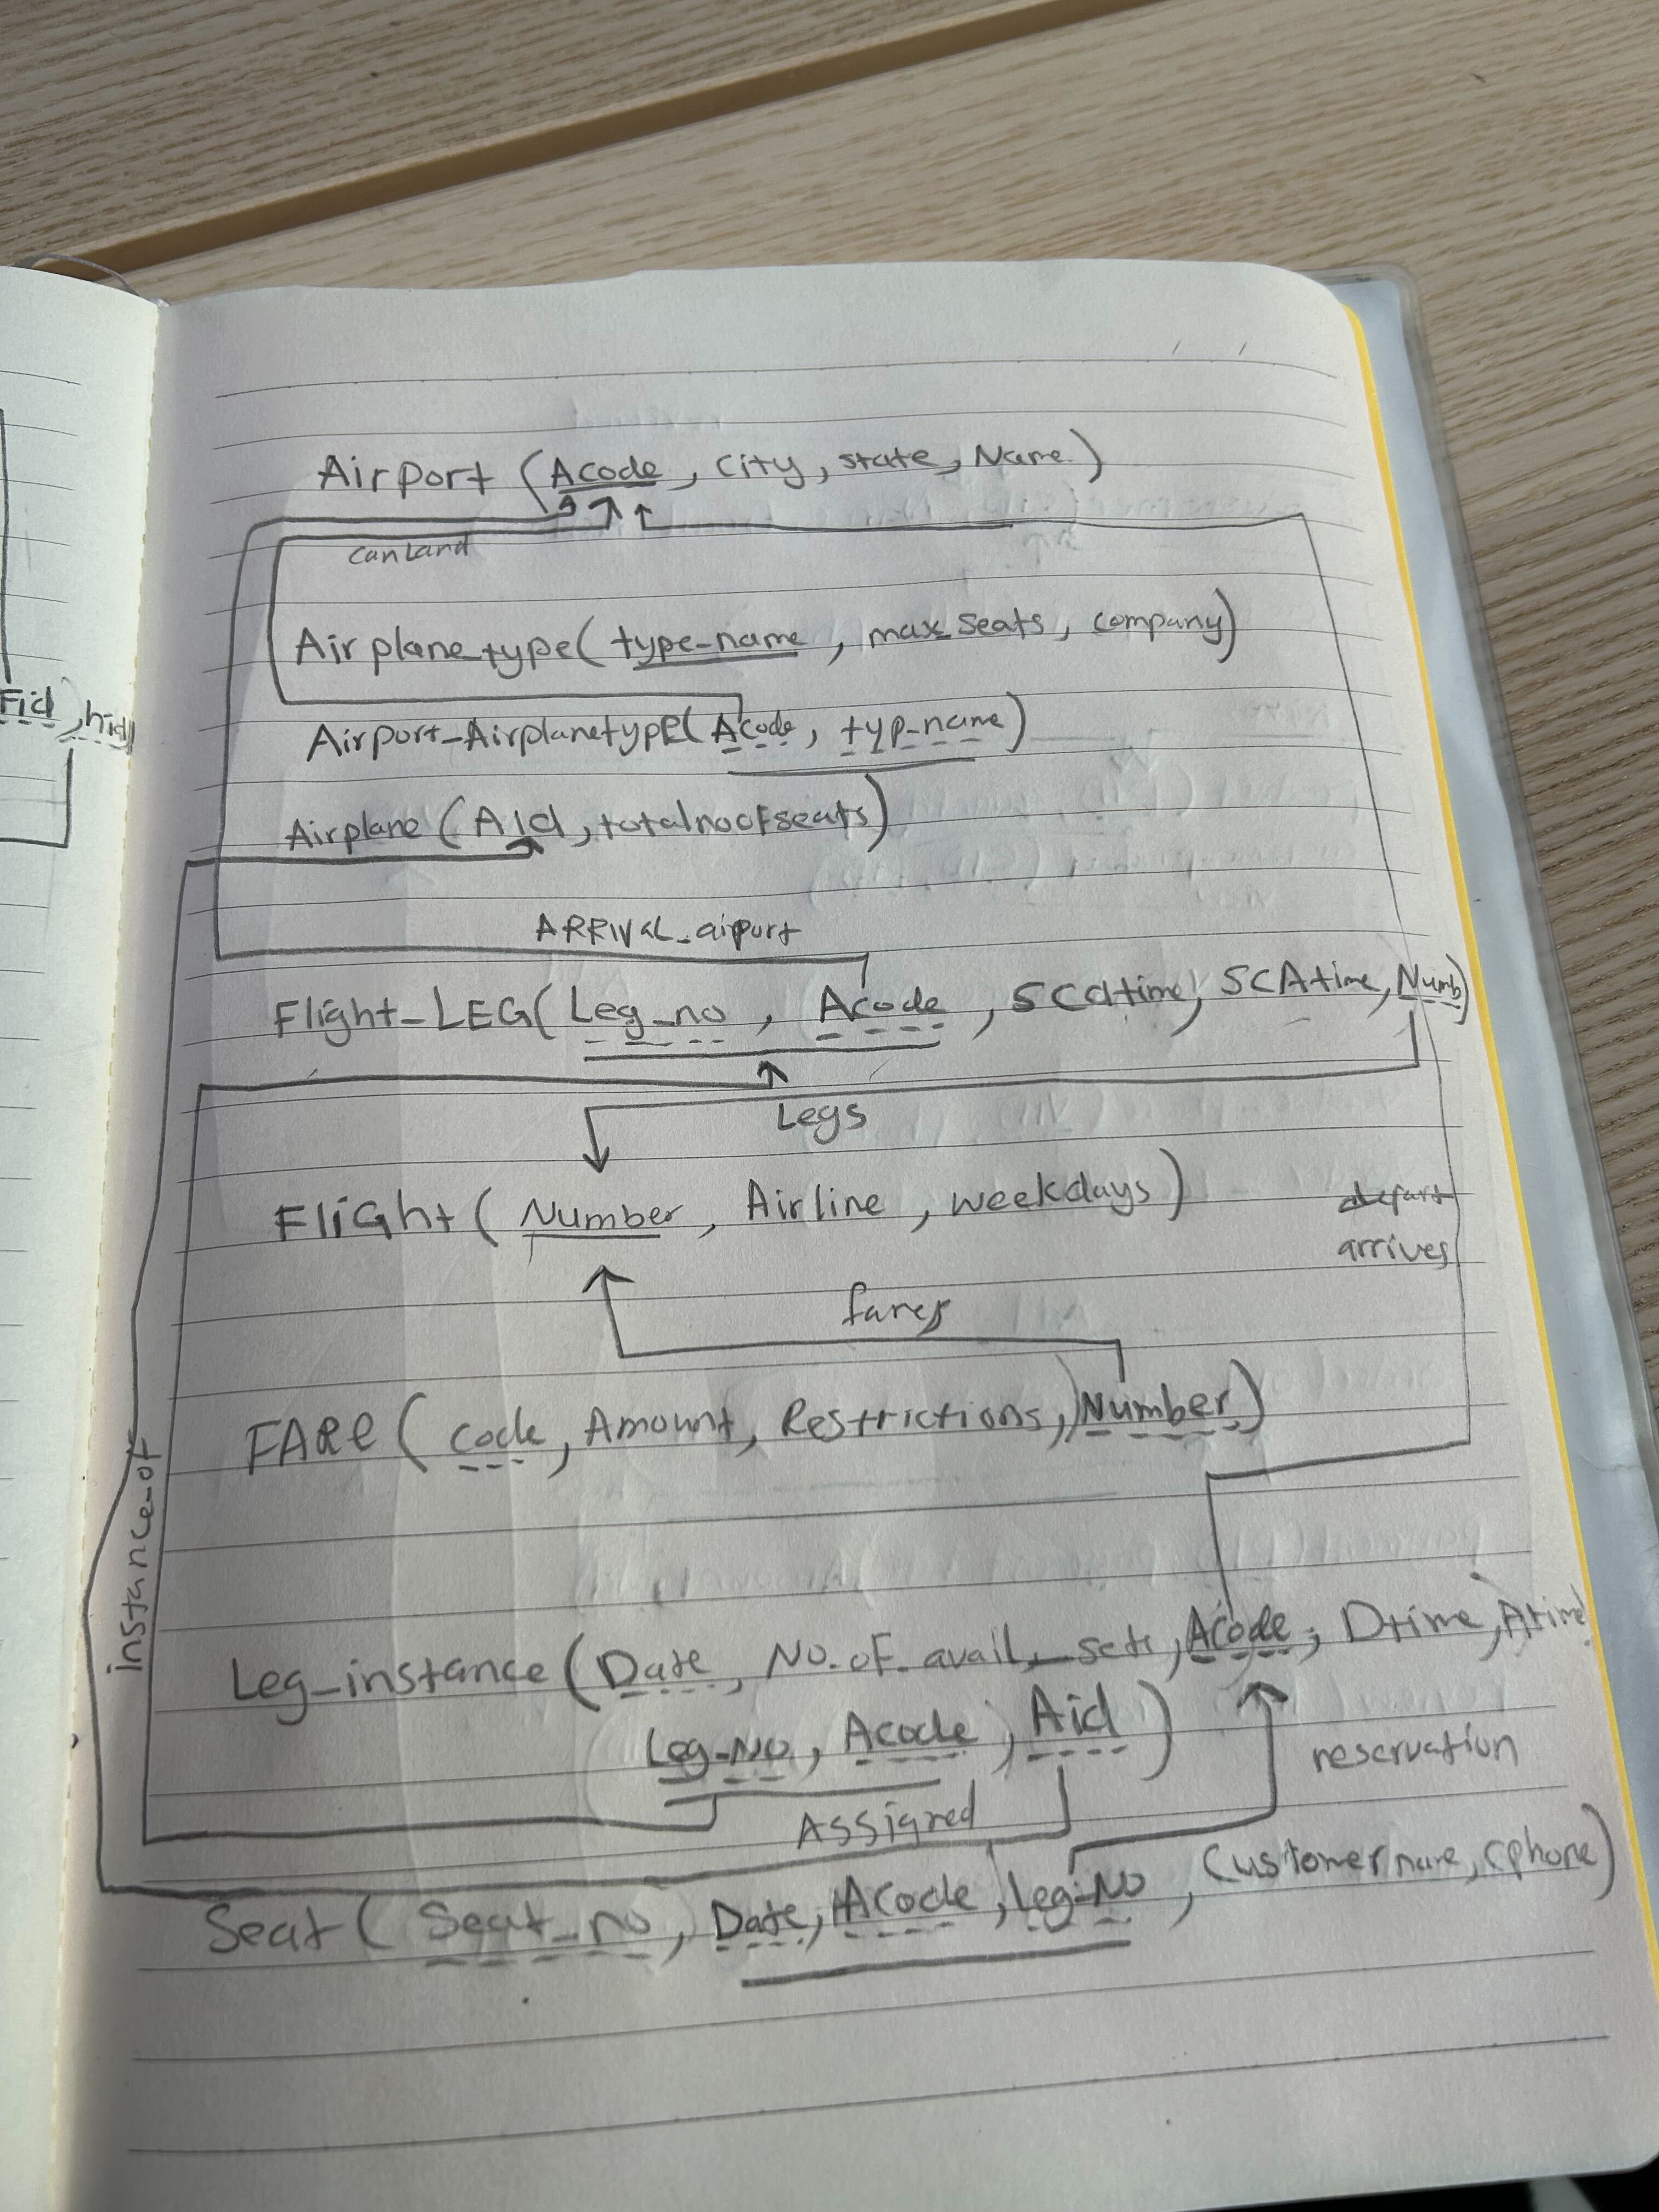 Airport (Acode, City, state, Name)
can Land
Airplane_type( type_name, max_seats, company)
Fid, hid
Airport_AirplanetypE( Acode, typ_name)
Airplane (AId, totalnoofseats)
ARRIVAL_airport
Flight_LEG( Leg_no, Acode, SCdtime, SCAtime, Numb)
Legs
FliGht( Number, Airline, weekdays)
depart
arrives
fares
FARe( code, Amount, Restrictions, Number)
instance_of
Leg_instance( Date, No.of.avail_sets, Acode, Dtime, Atime
Leg_No, Acode, Aid)
reservation
Assigned
Seat( Seat_no, Date, Acode, Leg_No, Customername, cphone)